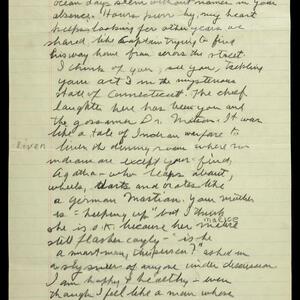 ocean days seem without names in your
absence. Hours pour by, my heart
keeps looking for other years we
shared, like Captain trying to find
his way home from across the street.
I think of you, see you, tackling
your act 3 in the mysterious
State of Connecticut. The chief
laughter here has been you and
the gossamer Dr. It was
like a tale of Indian warfare to
liven the dining room where no
indians are except your find,
Agatha – who leaps about,
wheels, darts and orates like
a German Martian. Your mother
is "keeping up" but I think
she is O.K. because her
malice
still flashes "is he
a smart man, " asked in
a sly of anyone under discussion
I am happy & healthy – even
though I feel like a man whose